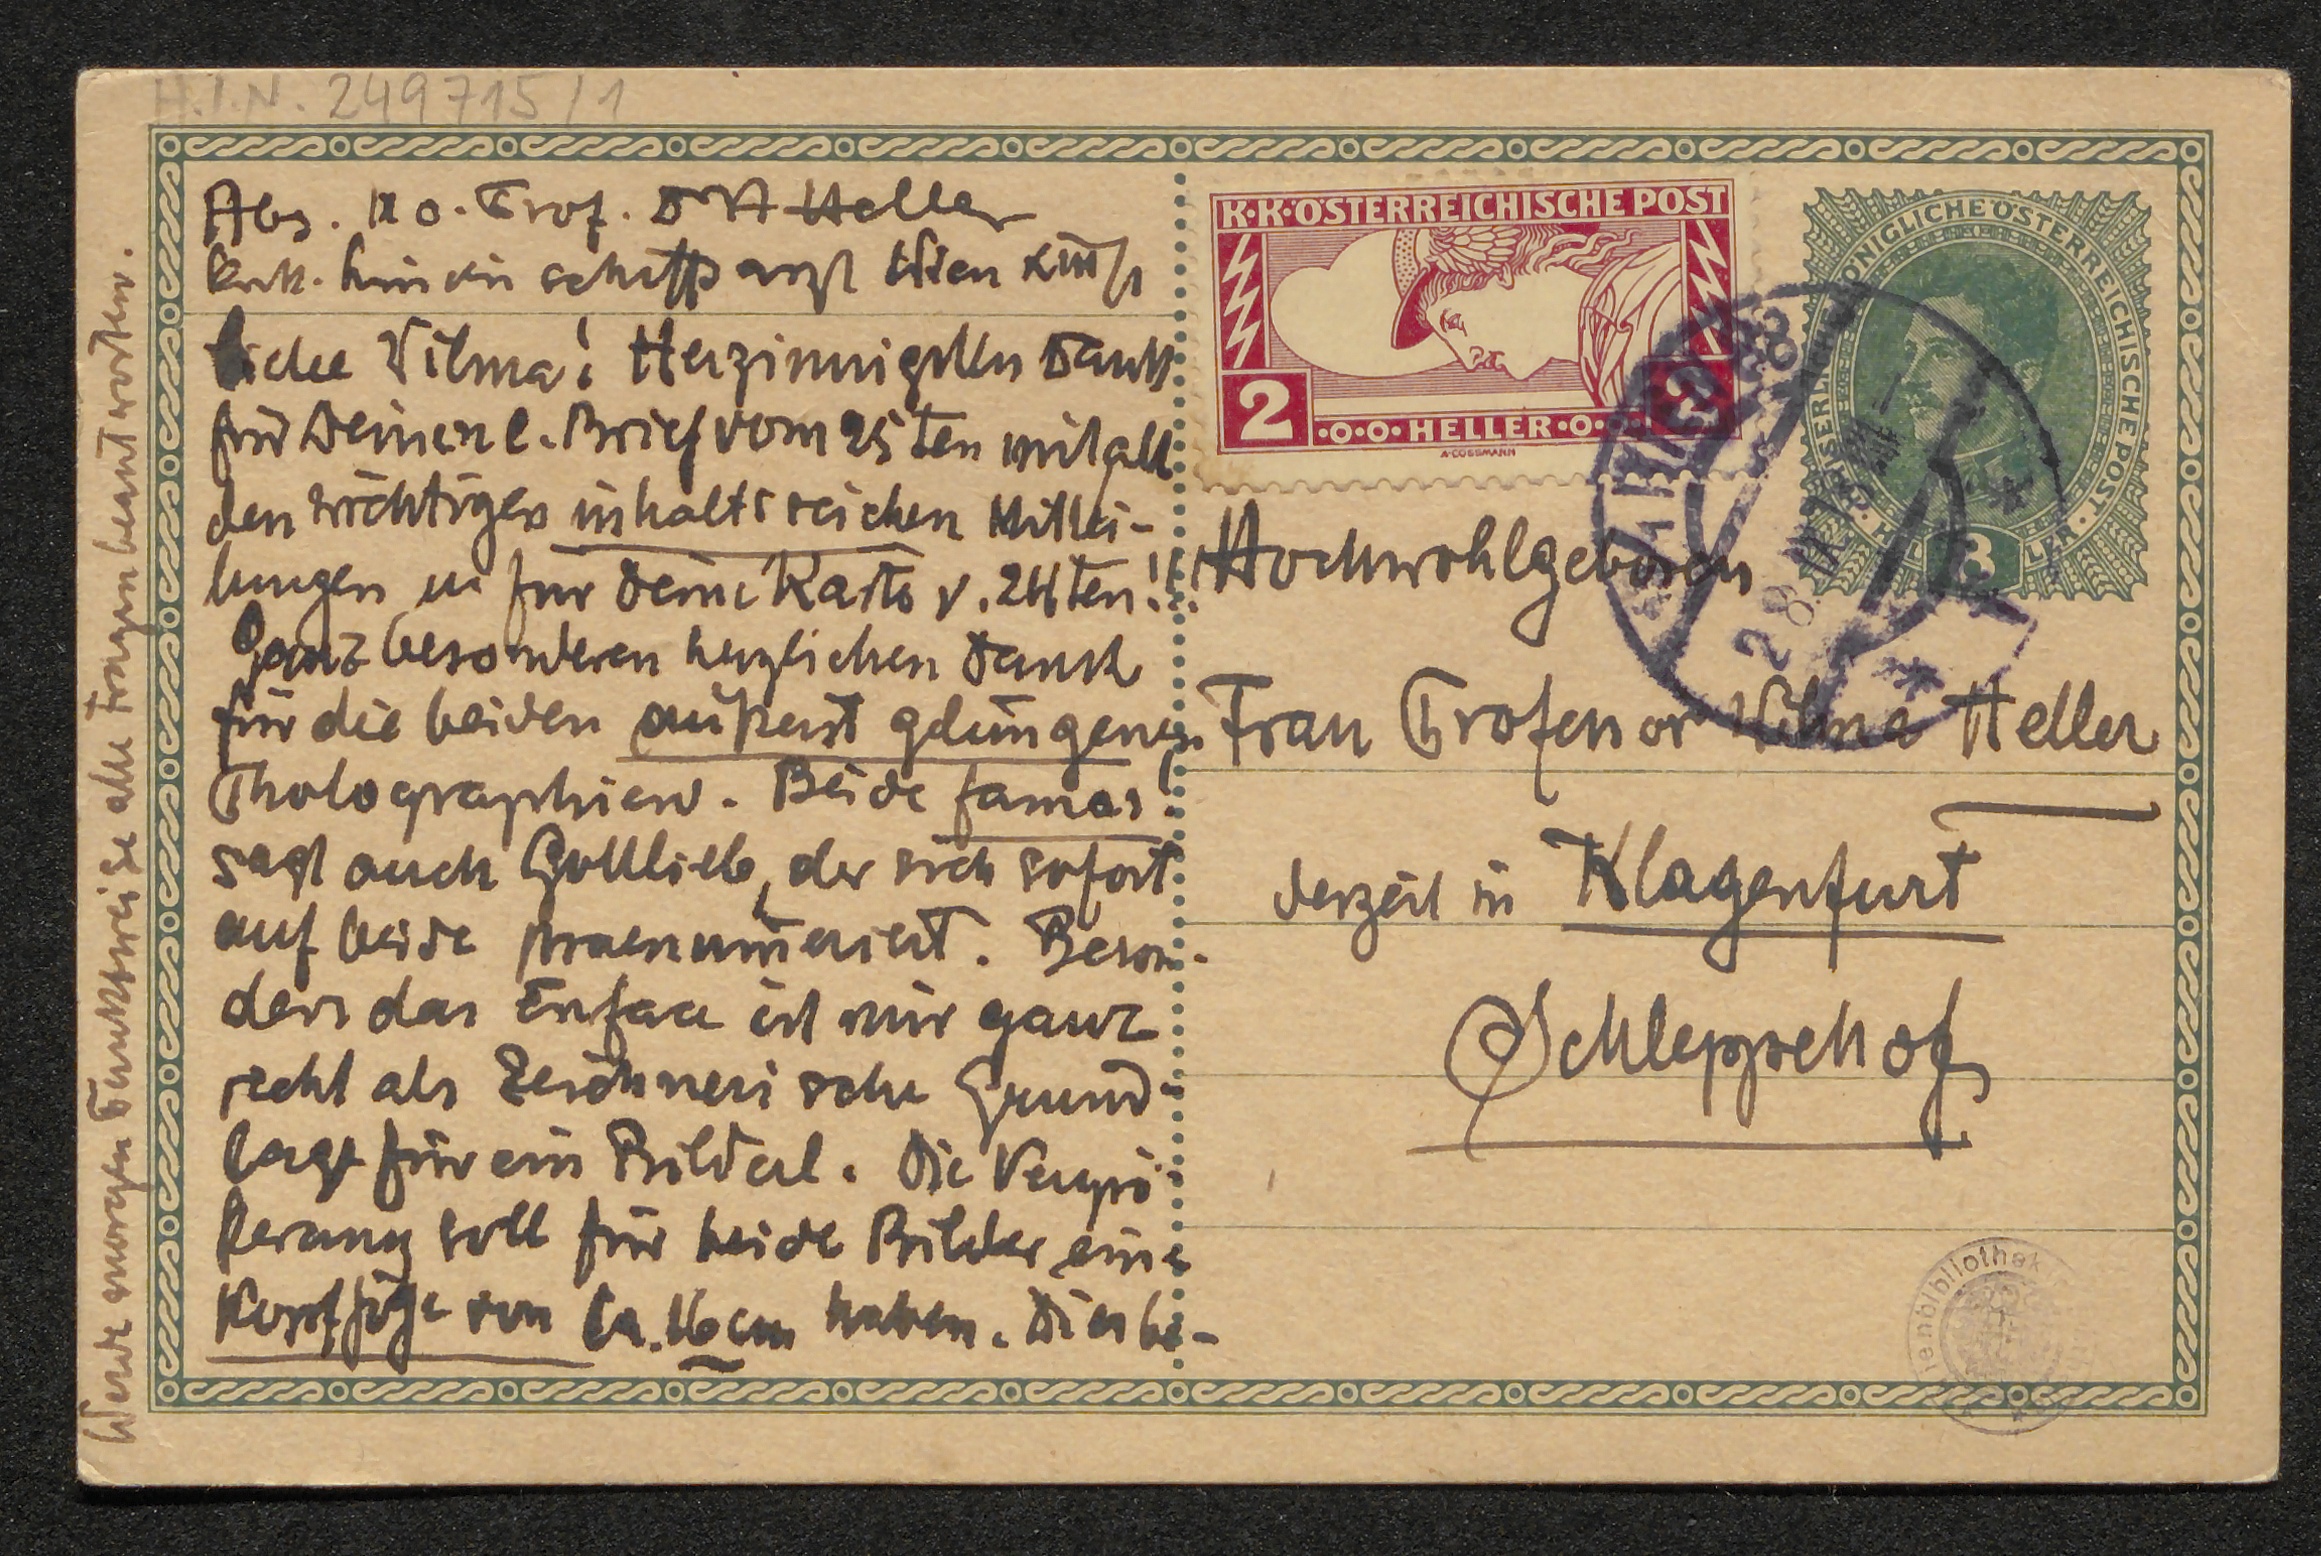 H.I.N. 249715/1
Abs. Prof. Dr Heller
Wien XIII/1
Liebe Vilma! Herzinnigsten Dank
für Deinen l. Brief vom 25ten mit all
den wichtigen inhaltsreichen Mittei-
lungen u für Deine Karte v. 24ten!!
Ganz besonderen herzlichen Dank
für die beiden äußerst gelungenen
Photographien. Beide famos!
sagt auch Gottlieb, der sich sofort
auf beide praenumeriert. Beson-
ders das Enface ist mir ganz
recht als zeichnerische Grund-
lage für ein Bilderl. Die Vergrö-
ßerung soll für beide Bilder eine
Kopfhöhe von ca. 16 cm haben. Dies be-
Werde morgen punktweise alle Fragen beantworten.
K.K. ÖSTERREICHISCHE POST
2 HELLER 2
A. COSSMANN
KAISERLICHE KÖNIGLICHE ÖSTERREICHISCHE POST
8
28. IX 18
Hochwohlgeboren
Frau Professor Vilma Heller
derzeit in Klagenfurt
Schleppehof
Wienbibliothek